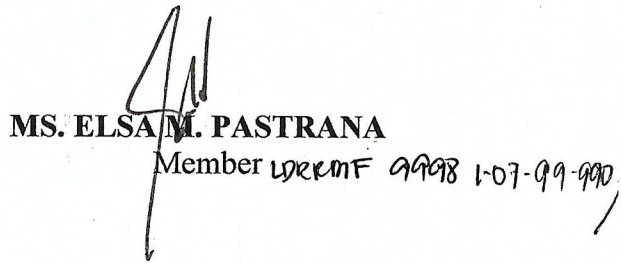 MS. ELSA M. PASTRANA
Member LDRRMF 9998 1-07-99-990